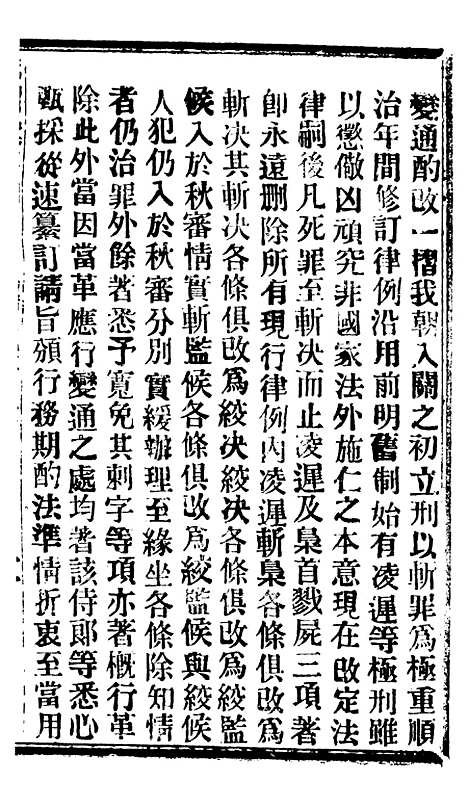 變通酌改一摺我朝入關之初立刑以斬罪爲極重順
治年間修訂律例沿用前明舊制始有凌遲等極刑雖
以懲儆凶頑究非國家法外施仁之本意現在改定法
律嗣後凡死罪至斬决而止凌遲及梟首戮屍三項著
卽永遠删除所有現行律例內凌遲斬梟各條俱改爲
斬决其斬决各條俱改爲絞决絞决各條俱改爲絞監
候入於秋審情實斬監候各條俱改爲絞監候與絞候
人犯仍入於秋審分別實緩辦理至緣坐各條除知情
者仍治罪外餘著悉予寬免其刺字等項亦著槪行革
除此外當因當革應行變通之處均著該侍郞等悉心
甄採從速纂訂請旨頒行務期酌法準情折衷至當用